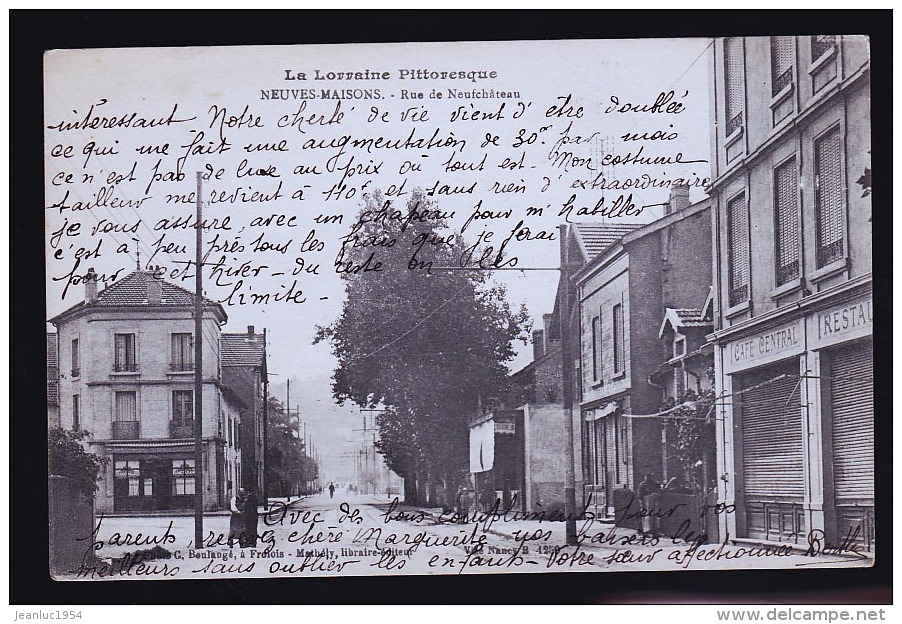 La Lorraine Pittoresque
NEUVES-MAISONS. - Rue de Neufchâteau
intéressant Notre cherté de vie vient d'être doublée
ce qui me fait une augmentation de 30f par mois
ce n'est pas de luxe au prix où tout est. Mon costume
tailleur me revient à 110f et sans rien d'extraordinaire
je vous assure, avec un chapeau pour m'habiller
c'est à peu près tous les frais que je ferai
pour cet hiver - du reste on les
limite -
CAFÉ CENTRAL
RESTAU
Avec des bons compliments pour vos
parents, recevez chère Marguerite nos baisers les
meilleurs sans oublier les enfants - Votre sœur affectionnée Berthe
C. Boulangé, à Frolois - Mathély, libraire-éditeur
Nancy B
jeanluc1954
www.delcampe.net